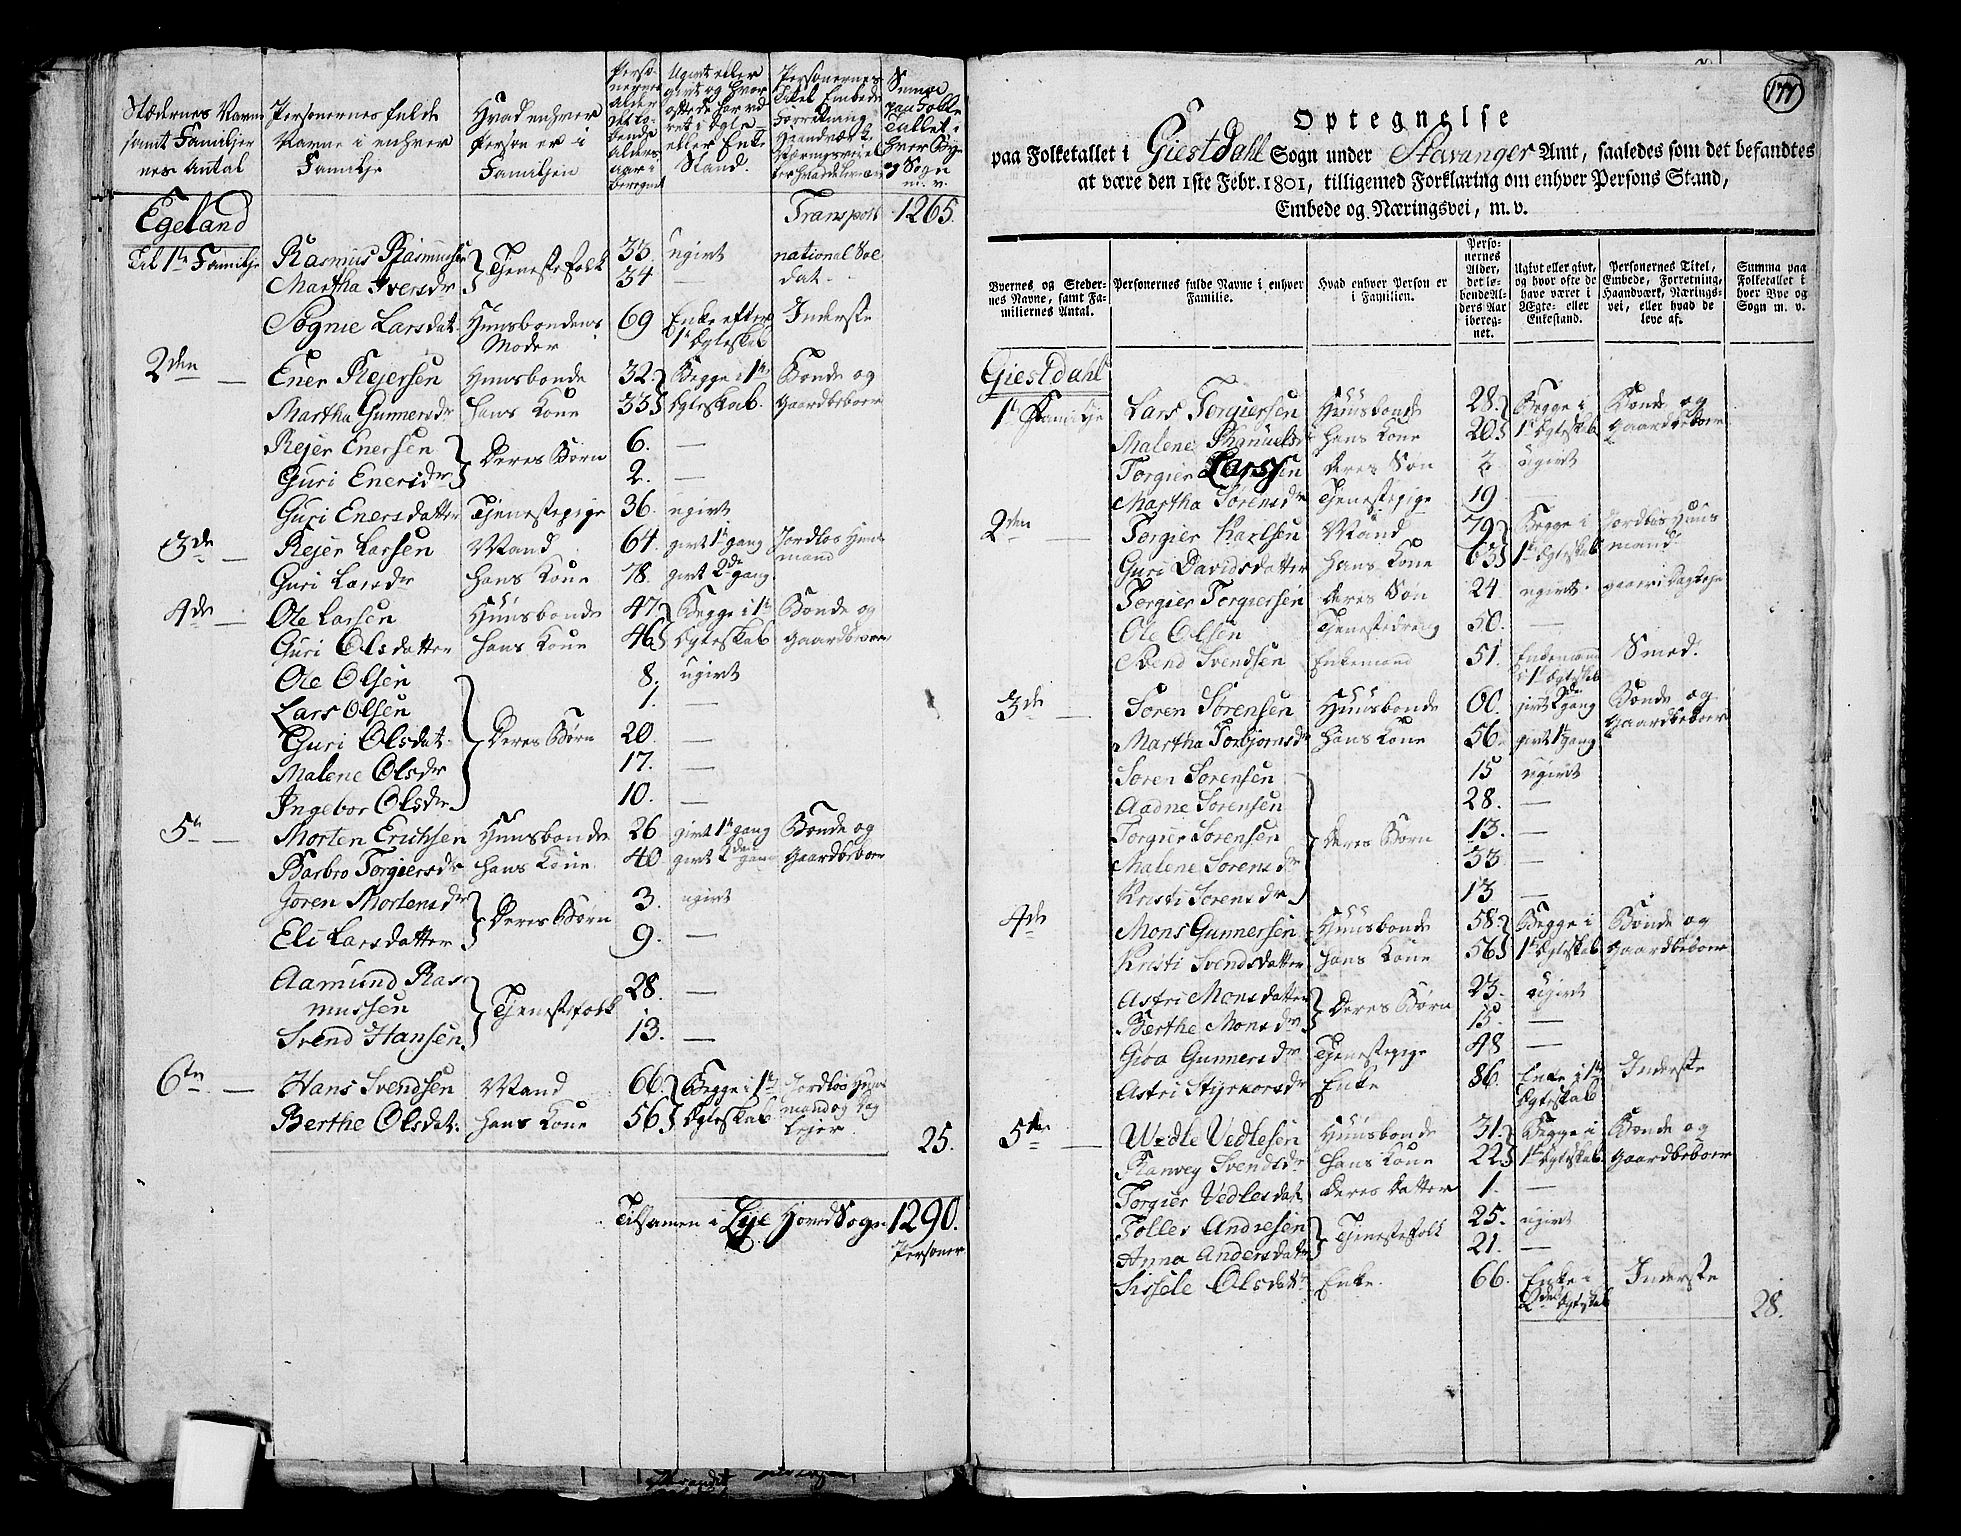 Stædernes Navne samt Familjer nes Antal | Personernes fulde Navne i enhver Familje | Hvad enhver Person er i Familjen | Personernes Alder det løbende Alders aar iberegnet | Ugivt eller givt og hvor ofte de har været i Ægte eller Enke Stand. | Personernes Titel Embede Forretning Haandværk Næringsvei eller hvad de lever af | Summa paa Folke Tallet i hver Bye og Sogn m. v.
Egeland | Transport | 1265.
Til 1te Familje | Rasmus Rasmussen } Tienestefolk | 33. | ugivt | national Sol dat.
Martha Iversdr | 34 | —
Søgnie Larsdat. | Huusbondens Moder | 69 | Enke efter 1te Ægteskab | Inderste
2den — | Ener Rejersen | Huusbonde | 32. } Begge i 1te | Bonde og
Martha Gunnersdr | hans Kone | 33 } Ægteskab. | Gaardbeboer
Rejer Enersen } Deres Børn | 6. | —
Guri Enersdr | 2. | —
Guri Enersdatter | Tienestepige | 36. | ugivt
3de — | Rejer Larsen | Mand | 64. | givt 1te gang | Jordløs Huus mand
Guri Larsdr | hans Kone | 78. | givt 2de gang
4de — | Ole Larsen | Huusbonde | 47 } Begge i 1te | Bonde og
Guri Olsdatter | hans Kone | 46 } Ægteskab | Gaardbeboer
Ole Olsen | 8. | ugivt
Lars Olsen | 1. | —
Guri Olsdat. } Deres Børn | 20. | —
Malene Olsdr | 17. | —
Ingebor Olsdr | 10. | —
5te — | Morten Erichsen | Huusbonde | 26 | givt 1te gang | Bonde og
Barbro Torgiersdr | hans Kone | 40 | givt 2den gang | Gaardbeboer
Joren Mortensdr } Deres Børn | 3. | ugivt
Eli Larsdatter | 9. | —
Aamund Rasmussen } Tienestefolk | 28. | —
Svend Hansen. | 13. | —
6te — | Hans Svendsen | Mand | 66. } Begge i 1te | Jordløs Huus
Berthe Olsdat. | hans Kone | 56 } Ægteskab | mand og Dag lejer | 25.
Tilsamen i Lye Hoved Sogn 1290. Personer
177
Optegnelse
paa Folketallet i Giestdahl Sogn under Stavanger Amt, saaledes som det befandtes
at være den 1ste Febr. 1801, tilligemed Forklaring om enhver Persons Stand,
Embede og Næringsvei, m. v.
Byernes og Stedernes Navne, samt Familiernes Antal. | Personernes fulde Navne i enhver Familie. | Hvad enhver Person er i Familien. | Personernes Alder, det løbende Alders Aar iberegnet. | Ugivt eller givt, og hvor ofte de have været i Ægte- eller Enkestand. | Personernes Titel, Embede, Forretning, Haandværk, Næringsvei, eller hvad de leve af. | Summa paa Folketallet i hver Bye og Sogn m. v.
Giestdahl
1te Familje | Lars Torgiersen | Huusbonde | 28. } Begge i | Bonde og
Malene | hans Kone | 20 } 1te Ægteskab | Gaardbeboer
Torgier Larssen | Deres Søn | 2. | ugivt
Martha Sørensdr | Tienestepige | 19 | —
2den — | Torgier Karlsen | Mand | 79 } Begge i | Jordløs Huus
Guri Davidsdatter | hans Kone | 63 } 1te Ægteskab | mand.
Torgier Torgiersen | Deres Søn | 24. | ugivt.
Ole Olsen | Tienestedreng | 50. | —
Svend Svendsen | Enkemand | 51. | Enkemand i 1te Ægteskab | Smed.
3de — | Soren Sorensen | Huusbonde | 60. | givt 2de gang | Bonde og
Martha Torbjornsdr | hans Kone | 56. | givt 1te gang | Gaardbeboer
Soren Sorensen | 15 | ugivt
Aadne Sorensen | 28. | —
Torgier Sorensen } Deres Børn | 13. | —
Malene Sorensdr | 33 | —
Kristi Sorensdr | 13 | —
4de | Mons Gunnersen | Huusbonde | 58. } Begge i | Bonde og
Kristi Svendsdatter | hans Kone | 56 } 1te Ægteskab | Gaardbeboer
Astri Monsdatter } Deres Børn | 23. | ugivt
Berthe Monsdr | 15. | —
Giøa Gunnersdr | Tienestepige | 48 | —
Astri Styrkorsdr | Enke | 86. | Enke i 1te Ægteskab | Inderste
5te — | Wedle Vedlesen | Huusbonde | 31. } Begge i | Bonde og
Ranvey Svendsdr | hans Kone | 22 } 1te Ægteskab | Gaardbeboer
Torgier Vedlesdat | Deres Datter | 1. | —
Tolles Andresen } Tienestefolk | 25. | ugivt
Anna Andersdatr | 21. | —
Sissele Olsdattr | Enke. | 66. | Enke i 2det Ægteskab | Inderste
28.